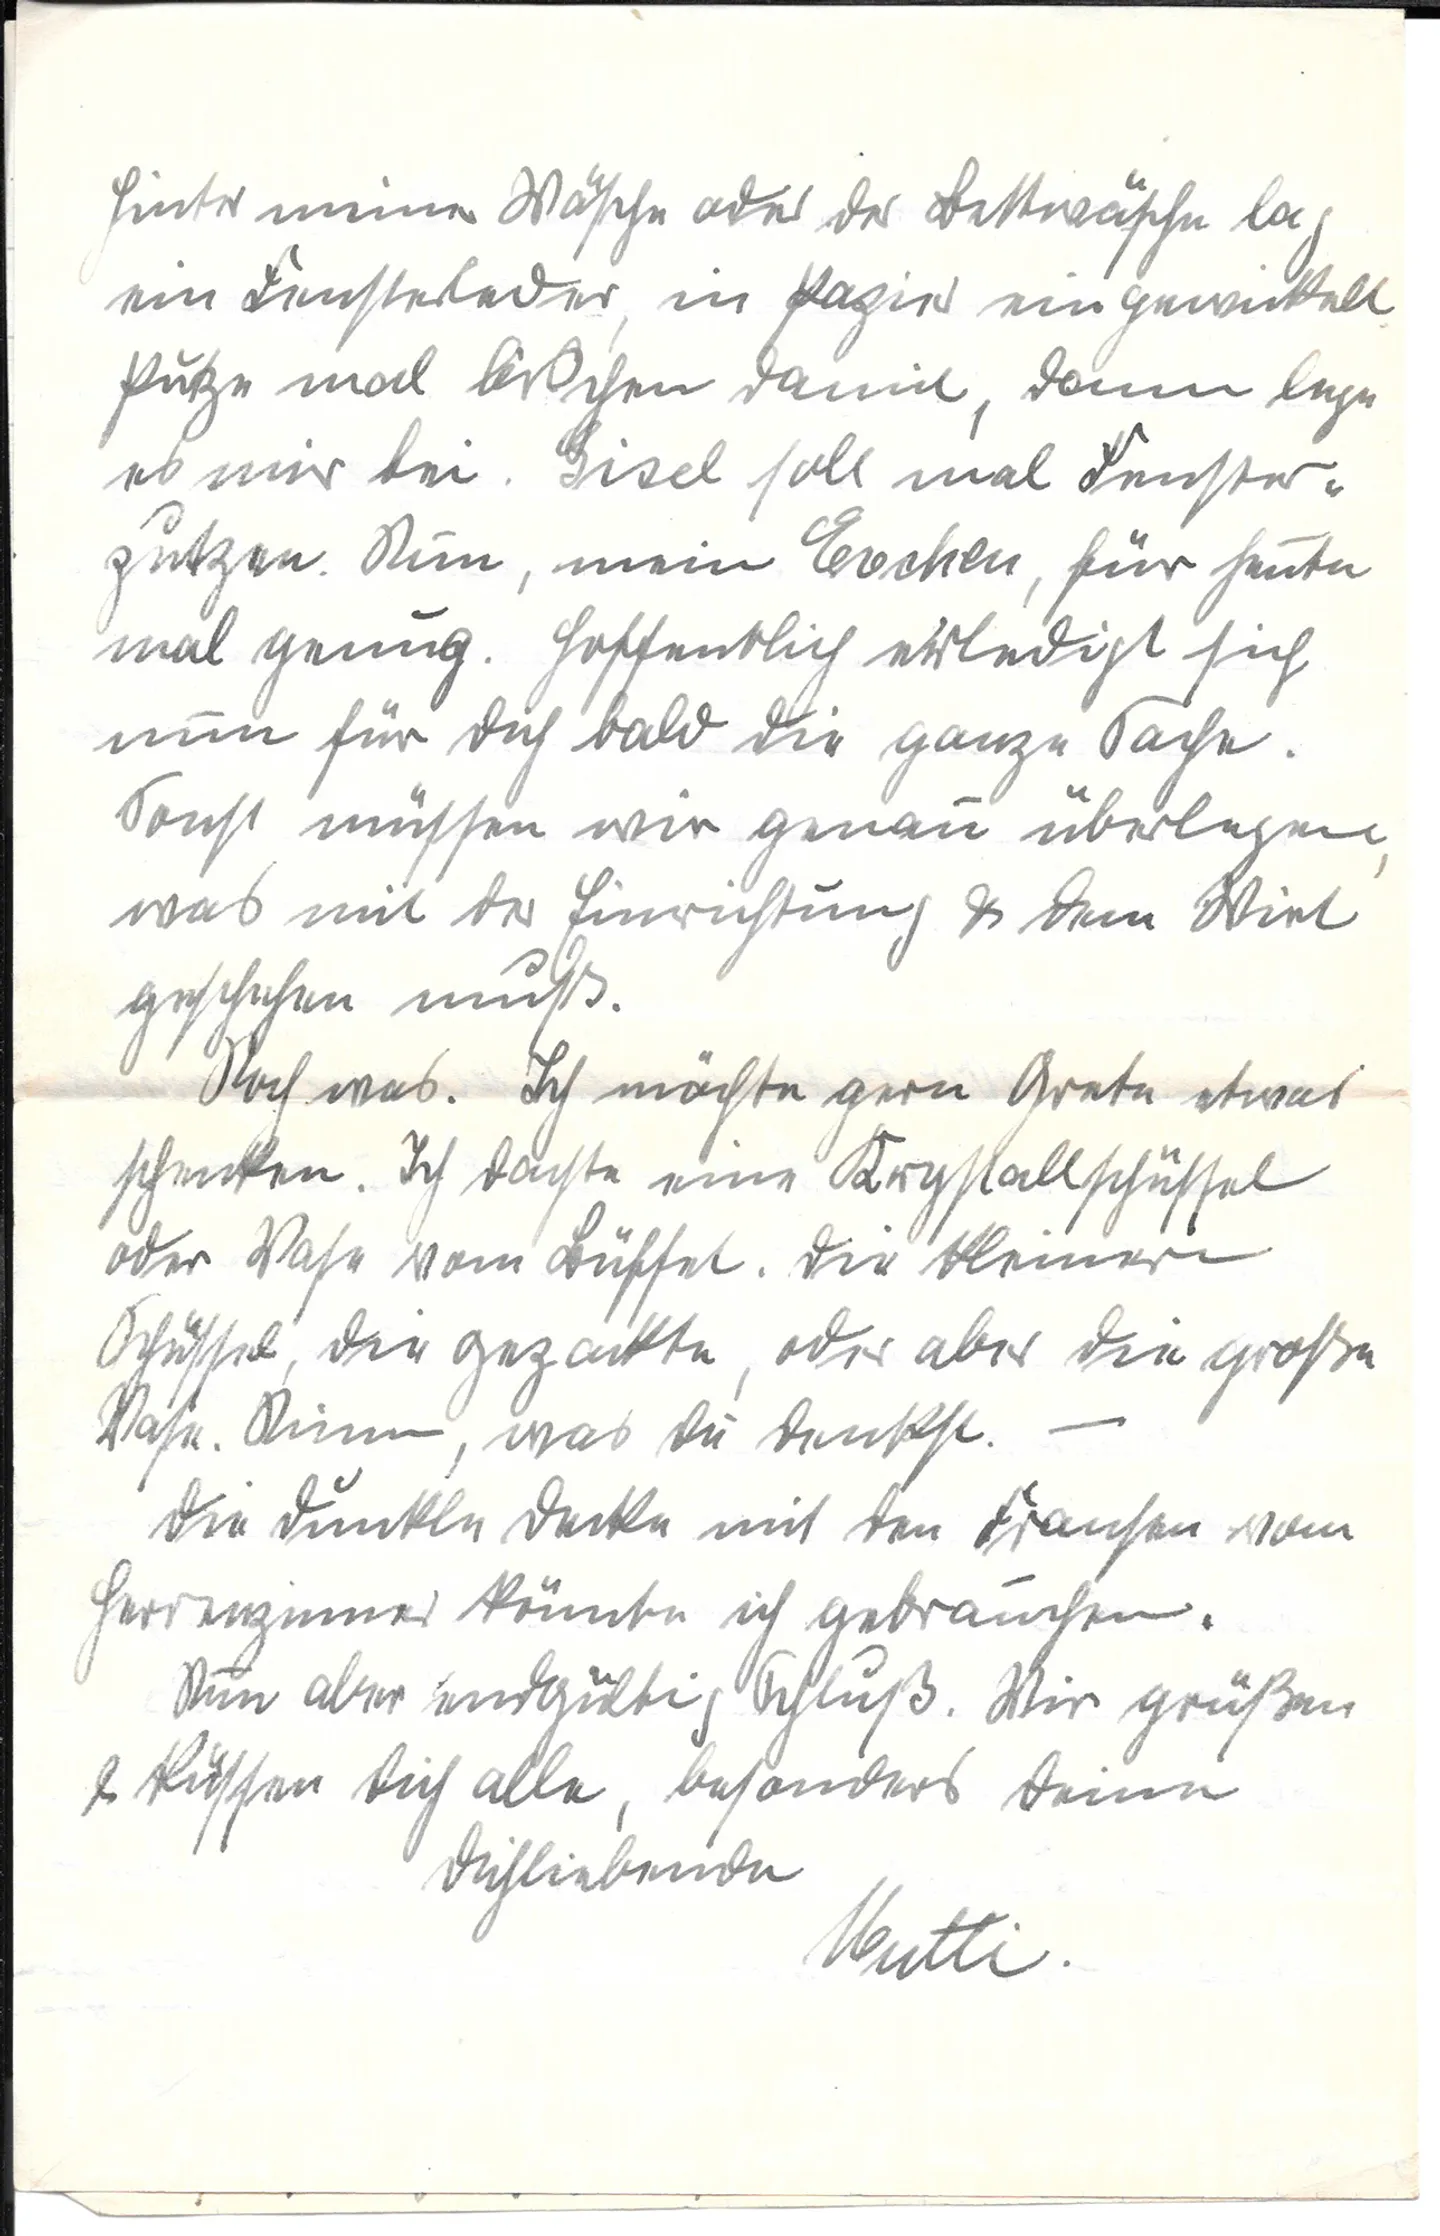 hinter meiner Wäsche oder der Bettwäsche lag
ein Fensterleder, in Papier eingewickelt.
Putze mal bißchen damit, dann lege
es mir bei. Gisel soll mal Fenster-
putzen. Nun, mein Evchen, für heute
mal genug. Hoffentlich erledigt sich
nun für Dich bald die ganze Sache.
Sonst müssen wir genau überlegen,
was mit der Einrichtung & dem Wirt
geschehen muß.
Noch was. Ich möchte gern Grete etwas
schenken. Ich dachte eine Krystallschüssel
oder Vase vom Büffet. Die kleinere
Schüssel, die gezackte, oder aber die große
Vase. Nimm, was Du denkst. —
Die dunkle Decke mit den Fransen vom
Herrenzimmer könnte ich gebrauchen.
Nun aber endgültig Schluß. Wir grüßen
& küssen Dich alle, besonders Deine
Dichliebende
Mutti.